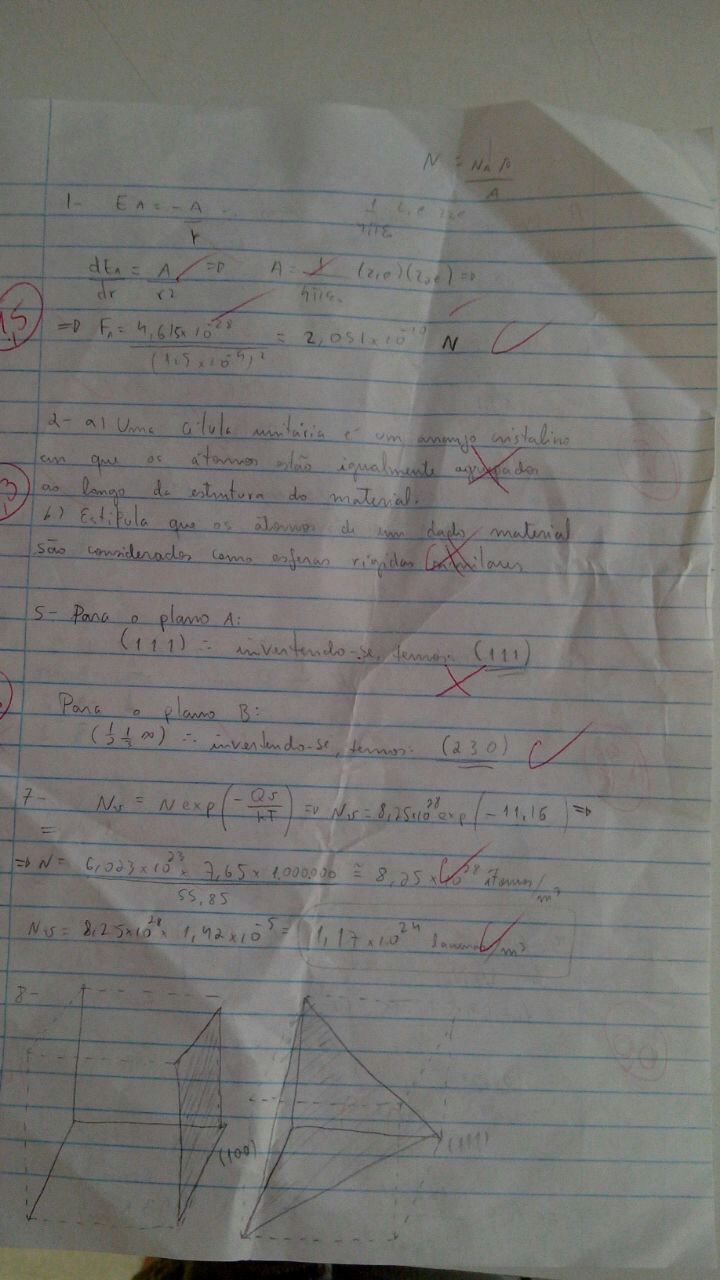 N = NA ρ / A
1- EA = - A / r
dEA / dr = A / r2 => A = 1 / 4πε0 (z1e)(z2e) =>
=> FA = 4,615x10^-28 / (1,5 x10^-9)^2 = 2,051x10^-10 N
2- a) Uma célula unitária é um arranjo cristalino
em que os átomos estão igualmente agrupados
ao longo da estrutura do material.
b) Estipula que os átomos de um dado material
são considerados como esferas rígidas
5- Para o plano A:
(1 1 1) ∴ invertendo-se, temos: (111)
Para o plano B:
(1/2 1/3 ∞) ∴ invertendo-se, temos: (230)
7- Nv = N exp(-Qv/kT) => Nv = 8,25x10^28 exp(-11,16) =>
=> N = 6,023x10^23 x 7,65 x 1.000.000 / 55,85 ≅ 8,25 x 10^28 átomos/m³
Nv = 8,25x10^28 x 1,42x10^-5 = 1,17 x10^24 lacunas/m³
8-
(100)
(111)